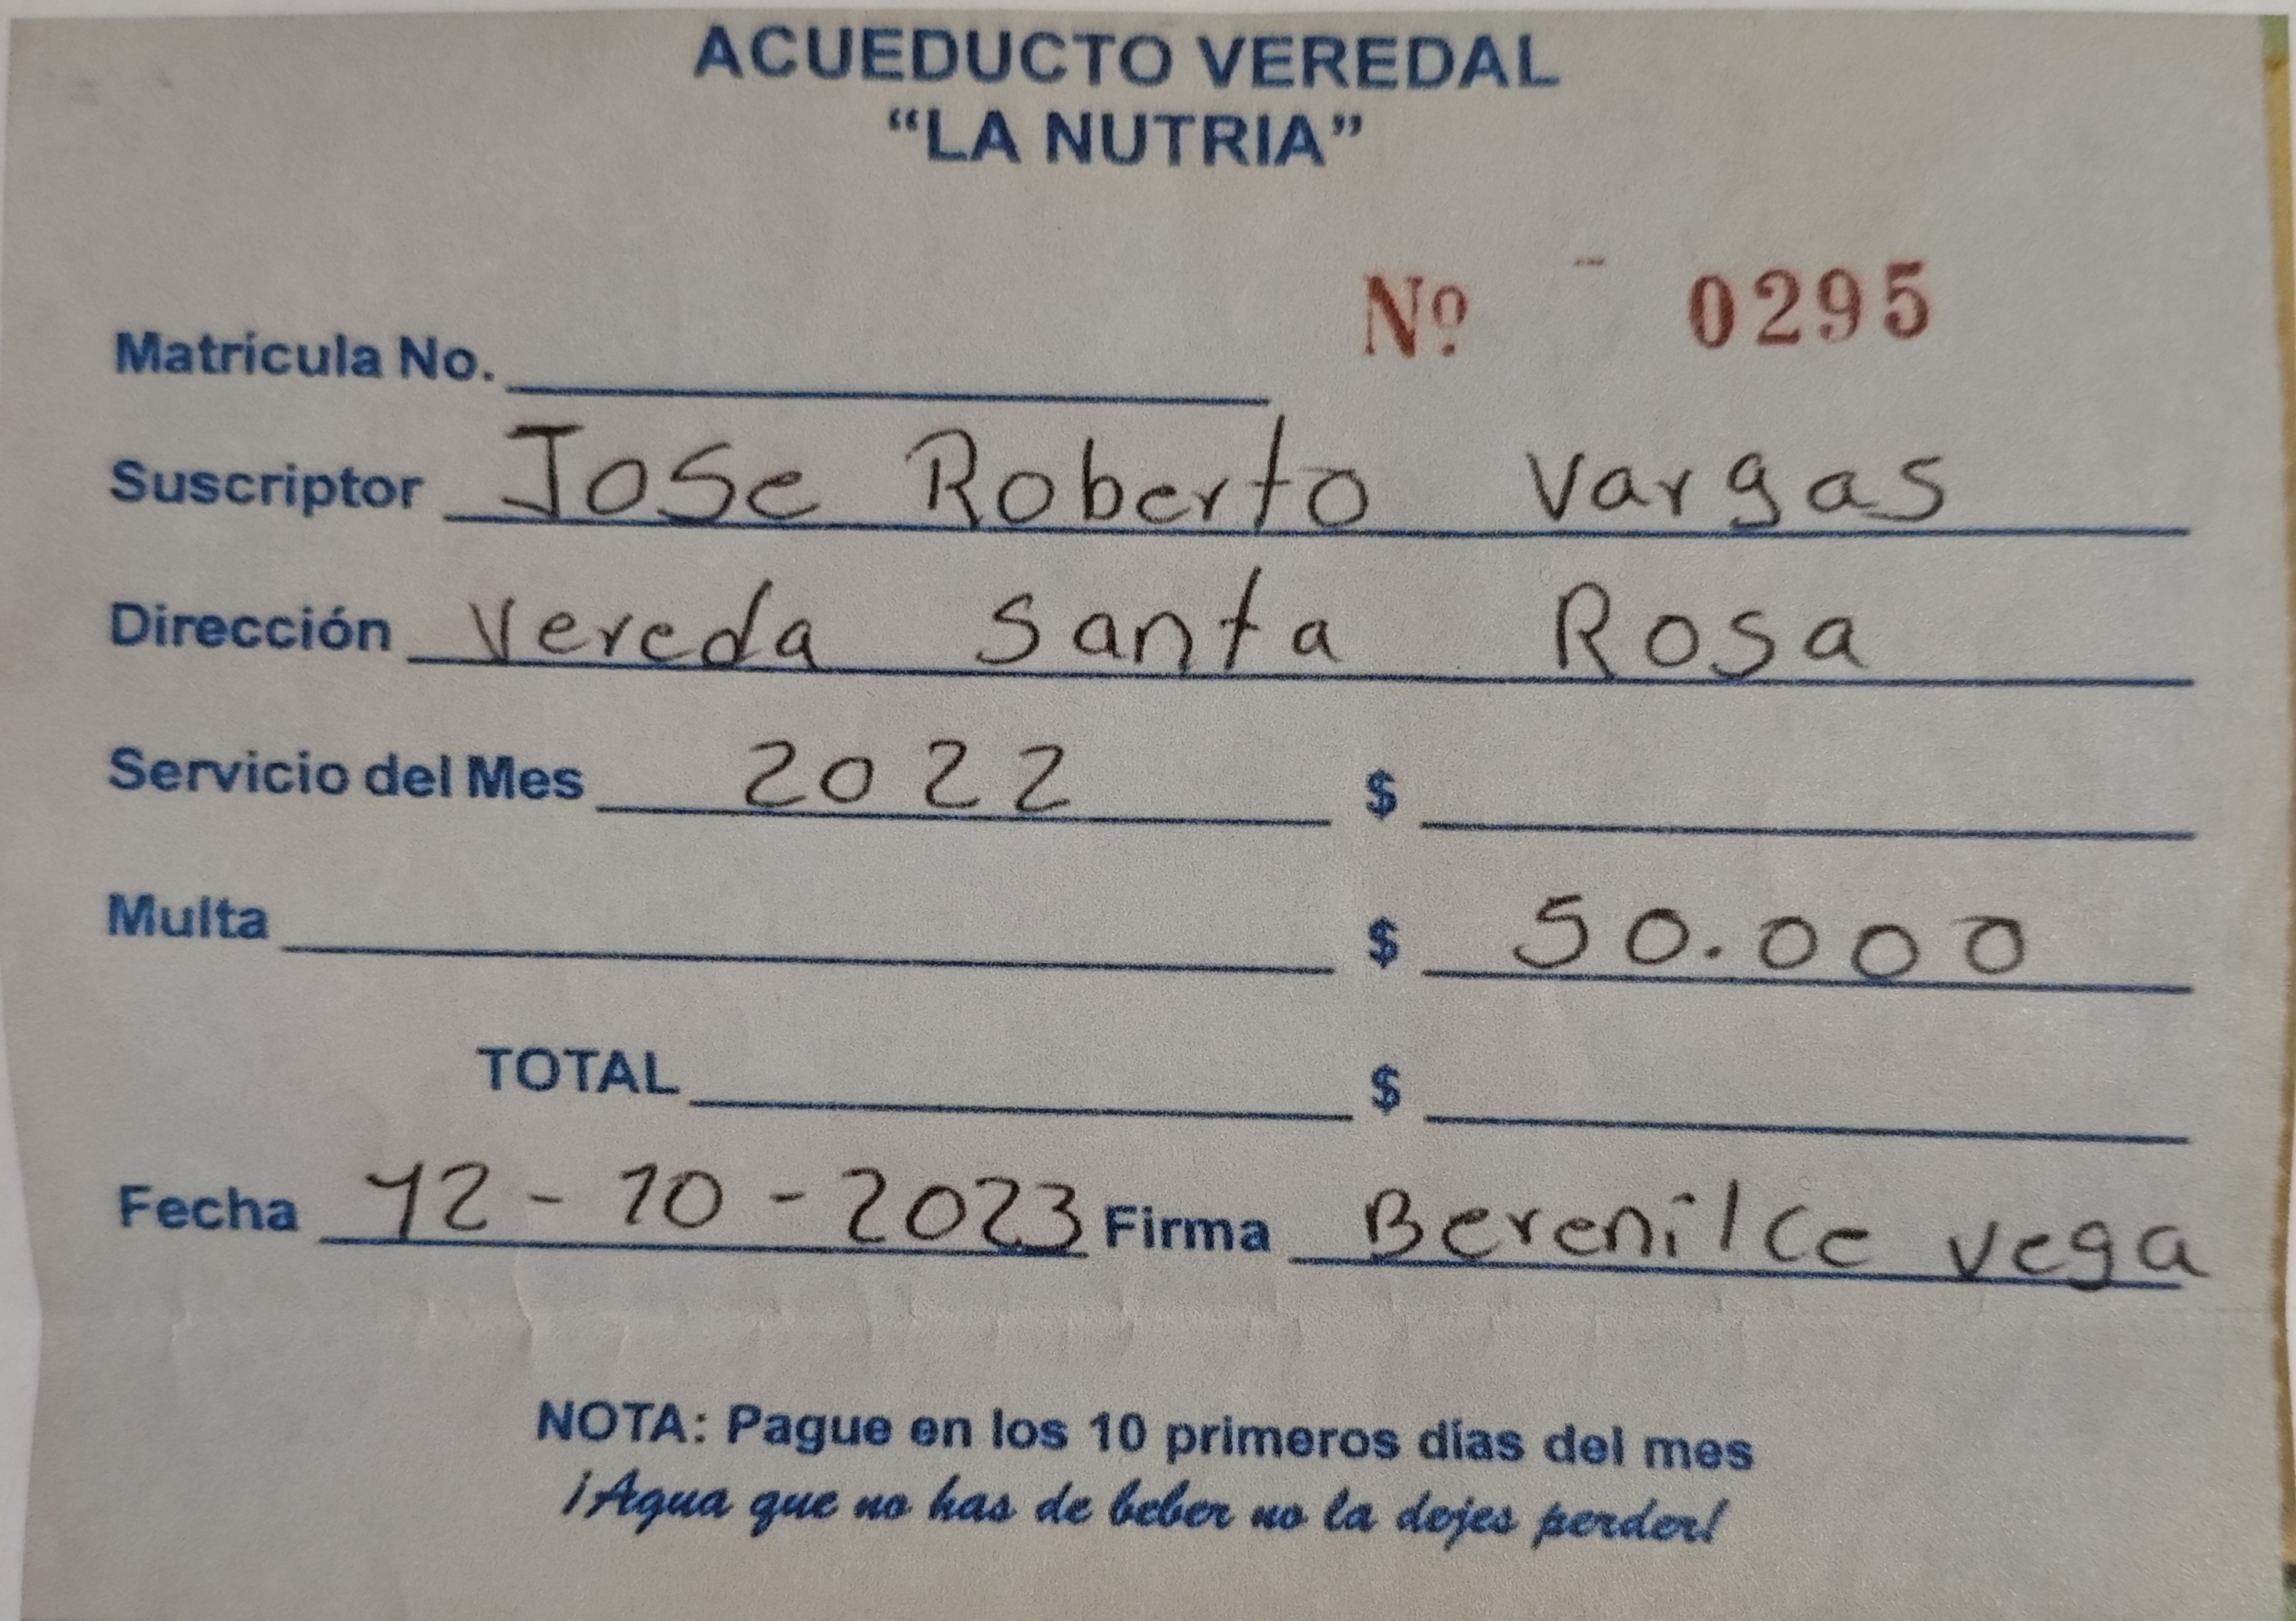 ACUEDUCTO VEREDAL
“LA NUTRIA”
Nº 0295
Matrícula No.
Suscriptor Jose Roberto Vargas
Dirección Vereda Santa Rosa
Servicio del Mes 2022 $
Multa $ 50.000
TOTAL $
Fecha 12-10-2023 Firma Berenilce vega
NOTA: Pague en los 10 primeros días del mes
¡Agua que no has de beber no la dejes perder!